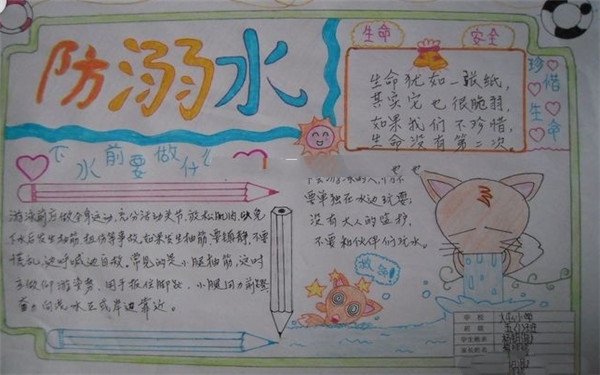 防溺水
生命 安全
生命犹如一张纸,
其实它也很脆弱,
如果我们不珍惜,
生命没有第二次。
珍惜生命
下水前要做什么
游泳前应做全身运动,充分活动关节,放松肌肉,以免
下水后发生抽筋、扭伤等事故。如果发生抽筋要镇静,不要
慌乱,边呼喊边自救。常见的是小腿抽筋,这时
应做仰游姿势,用手扳住脚趾,小腿用力前蹬
奋力向浅水区或岸边靠近。
不会游泳的人,
要单独在水边玩耍;
没有大人的监护,
不要和伙伴们玩水。
救命!
学校
班级
学生姓名
家长姓名